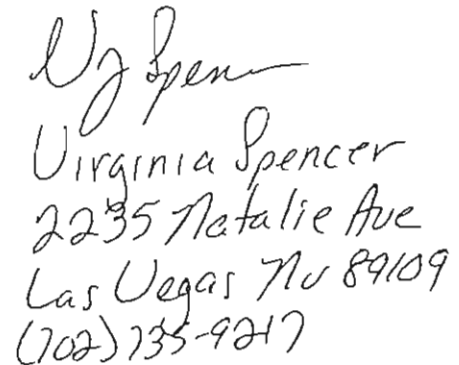 Vg Spen
Virginia Spencer
2235 Natalie Ave
Las Vegas Nv 89109
(702) 735-9217